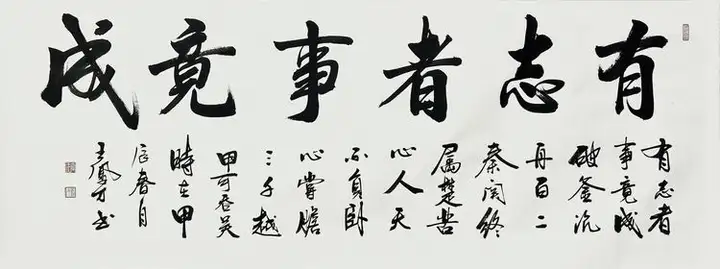 有志者事竟成
有志者
事竟成
破釜沉
舟百二
秦関终
屬楚苦
心人天
不負卧
心嘗膽
三千越
甲可吞吴
時在甲
辰春月
王鳳书